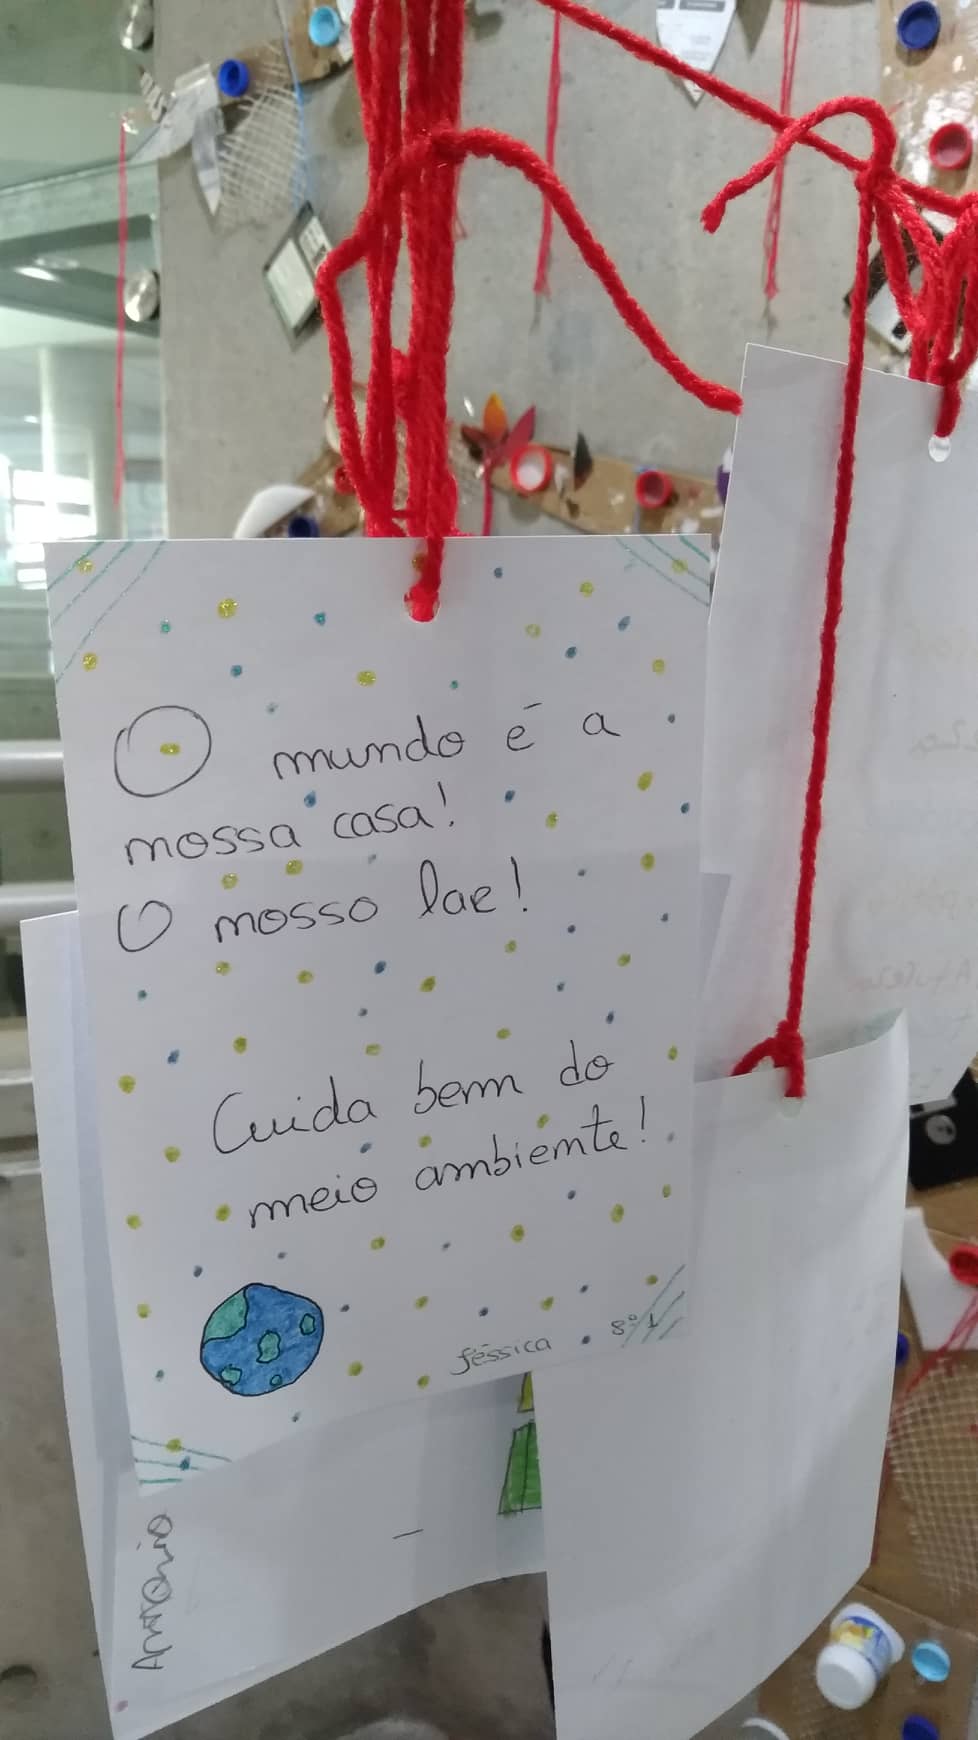 O mundo é a
nossa casa!
O nosso lar!
Cuida bem do
meio ambiente!
Jéssica 8º1
António